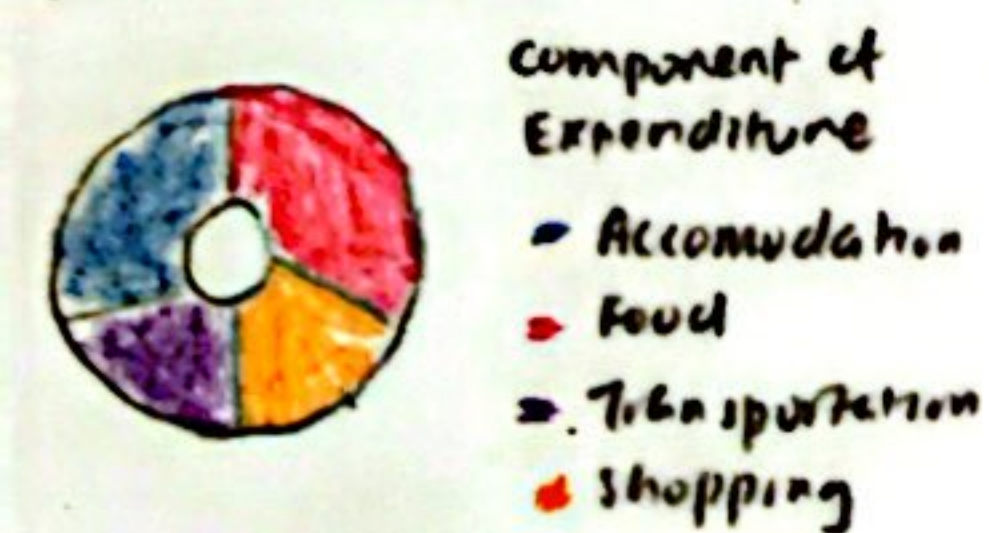 component of
Expenditure
Accomodation
Food
Transportation
Shopping